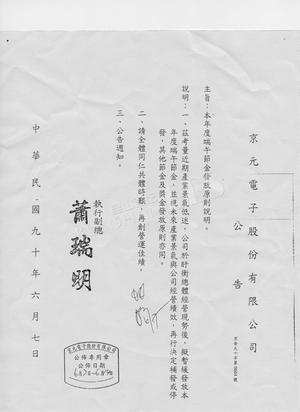 京元電子股份有限公司
公告
主旨：本年度端午節金發放原則說明。
說明：一、茲考量近期產業景氣低迷，公司於盱衡總體經營現勢後，擬暫緩發放本
年度端午節金，並視未來產業景氣與公司經營績效，再行決定補發或停
發，其他節金及獎金發放原則亦同。
二、請全體同仁共體時艱，再創營運佳績。
三、公告週知。
執行副總
蕭瑞明
中華民國九十年六月七日
京元電子股份有限公司
公佈專用章
公佈日期